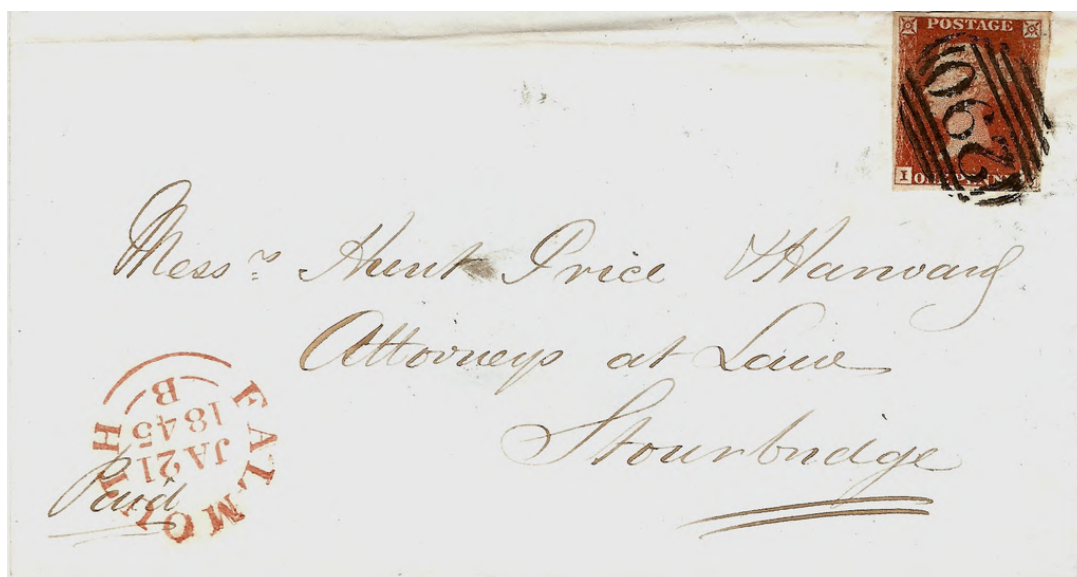 POSTAGE
290
I ONE PENNY
Messrs Hunt Price & Harward
Attorneys at Law
Stourbridge
FALMOUTH
JA 21
1845
B
Paid